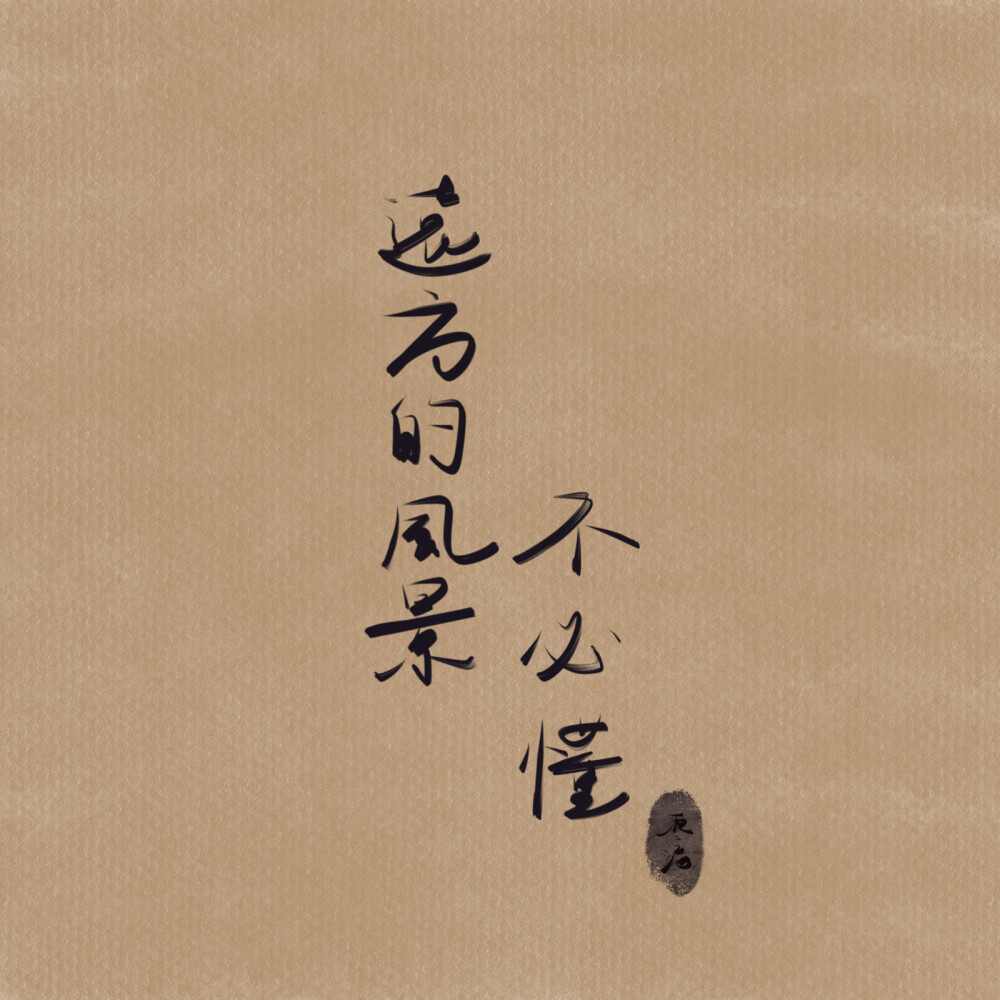 遠方的風景
不必懂